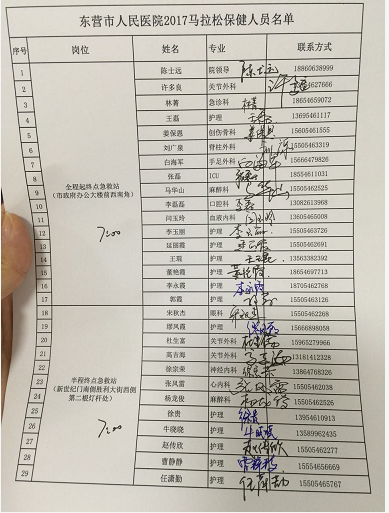 东营市人民医院2017马拉松保健人员名单
序号 岗位 姓名 专业 联系方式
1 陈士远 院领导 陈士远 18860638999
2 许多良 关节外科 627666
3 林菁 急诊科 林菁 18654659072
4 王磊 护理 王磊 13695461117
5 姜保恩 创伤骨科 15605461555
6 刘广泉 脊柱外科 15505463319
7 白海军 手足外科 15666479826
8 张磊 ICU 15554611051
9 全程起终点急救站 马华山 麻醉科 15505462525
10 (市政府办公大楼前西南角) 李磊磊 口腔科 13082613968
11 闫玉玲 血液内科 闫玉玲 13605465008
12 7:00 李玉丽 护理 15505462625
13 延丽霞 护理 15505462691
14 王琨 护理 王琨 13563382392
15 董艳霞 护理 董艳霞 18654697713
16 李永霞 护理 18705462768
17 郭霞 护理 15505463126
18 宋秋杰 眼科 15505462268
19 缪凤霞 护理 15666898058
20 杜生富 关节外科 15965279966
21 高吉海 关节外科 13181412328
22 徐宗荣 神经内科 13864768326
23 半程终点急救站 张风雷 心内科 15505462038
24 (新世纪门南侧胜利大街西侧 杨龙俊 麻醉科 15505462506
25 第二根灯杆处) 徐贵 护理 徐贵 13954610913
26 牛晓晓 护理 13589962435
27 7:00 赵传欣 护理 15505462277
28 曹静静 护理 15554656669
29 任潇勤 护理 15505465767